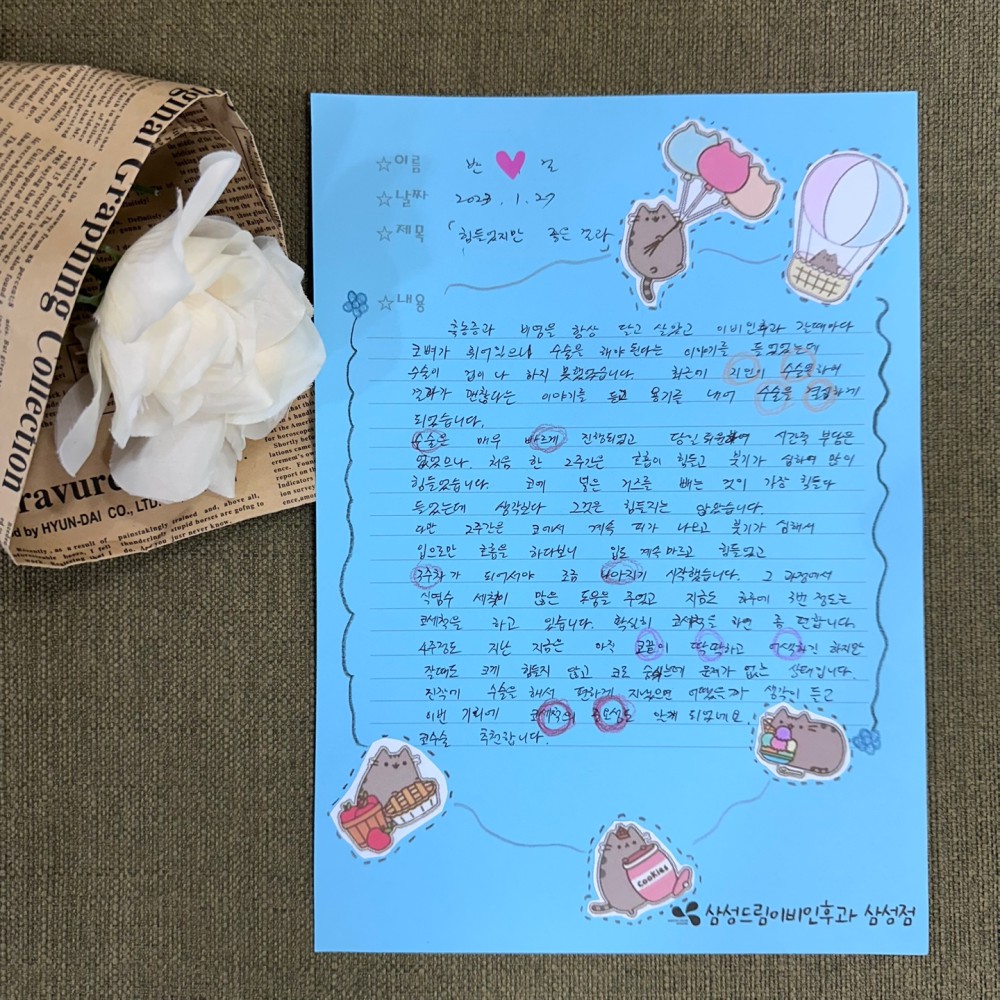 ☆이름 반 ♥ 길
☆날짜 2023. 1. 27
☆제목 「힘들었지만 좋은 결과」
☆내용
축농증과 비염을 항상 달고 살았고 이비인후과 갈때마다
코벽가 휘어있으니 수술은 해야 된다는 이야기를 들었었는데
수술이 겁이 나 하지 못했었습니다. 최근에 지인이 수술하여
결과가 괜찮다는 이야기를 듣고 용기를 내어 수술을 결정하게
되었습니다.
수술은 매우 빠르게 진행되었고 당일 퇴원하여 시간적 부담은
없었으나, 처음 한 2주간은 호흡이 힘들고 붓기가 심하여 많이
힘들었습니다. 코에 넣은 거즈를 빼는 것이 가장 힘들다
들었는데 생각보다 그것은 힘들지는 않았습니다.
다만 2주간은 코에서 계속 피가 나오고 붓기가 심해서
입으로만 호흡을 하다보니 입도 계속 마르고 힘들었고
3주차가 되어서야 조금 나아지기 시작했습니다. 그 과정에서
식염수 세척이 많은 도움을 주었고 지금도 하루에 3번 정도는
코세척을 하고 있습니다. 확실히 코세척을 하면 좀 편합니다.
4주정도 지난 지금은 아직 코끝이 딱딱하고 어색하긴 하지만
잘때도 크게 힘들지 않고 코로 숨쉬는데 문제가 없는 상태입니다.
진작에 수술을 해서 편하게 지냈으면 어땠을까 생각이 들고
이번 기회에 코세척의 중요성도 알게 되었네요.
코수술 추천합니다.
COOKIES
삼성드림이비인후과 삼성점
Original Grapping Collection
HYUN-DAI CO., LTD.